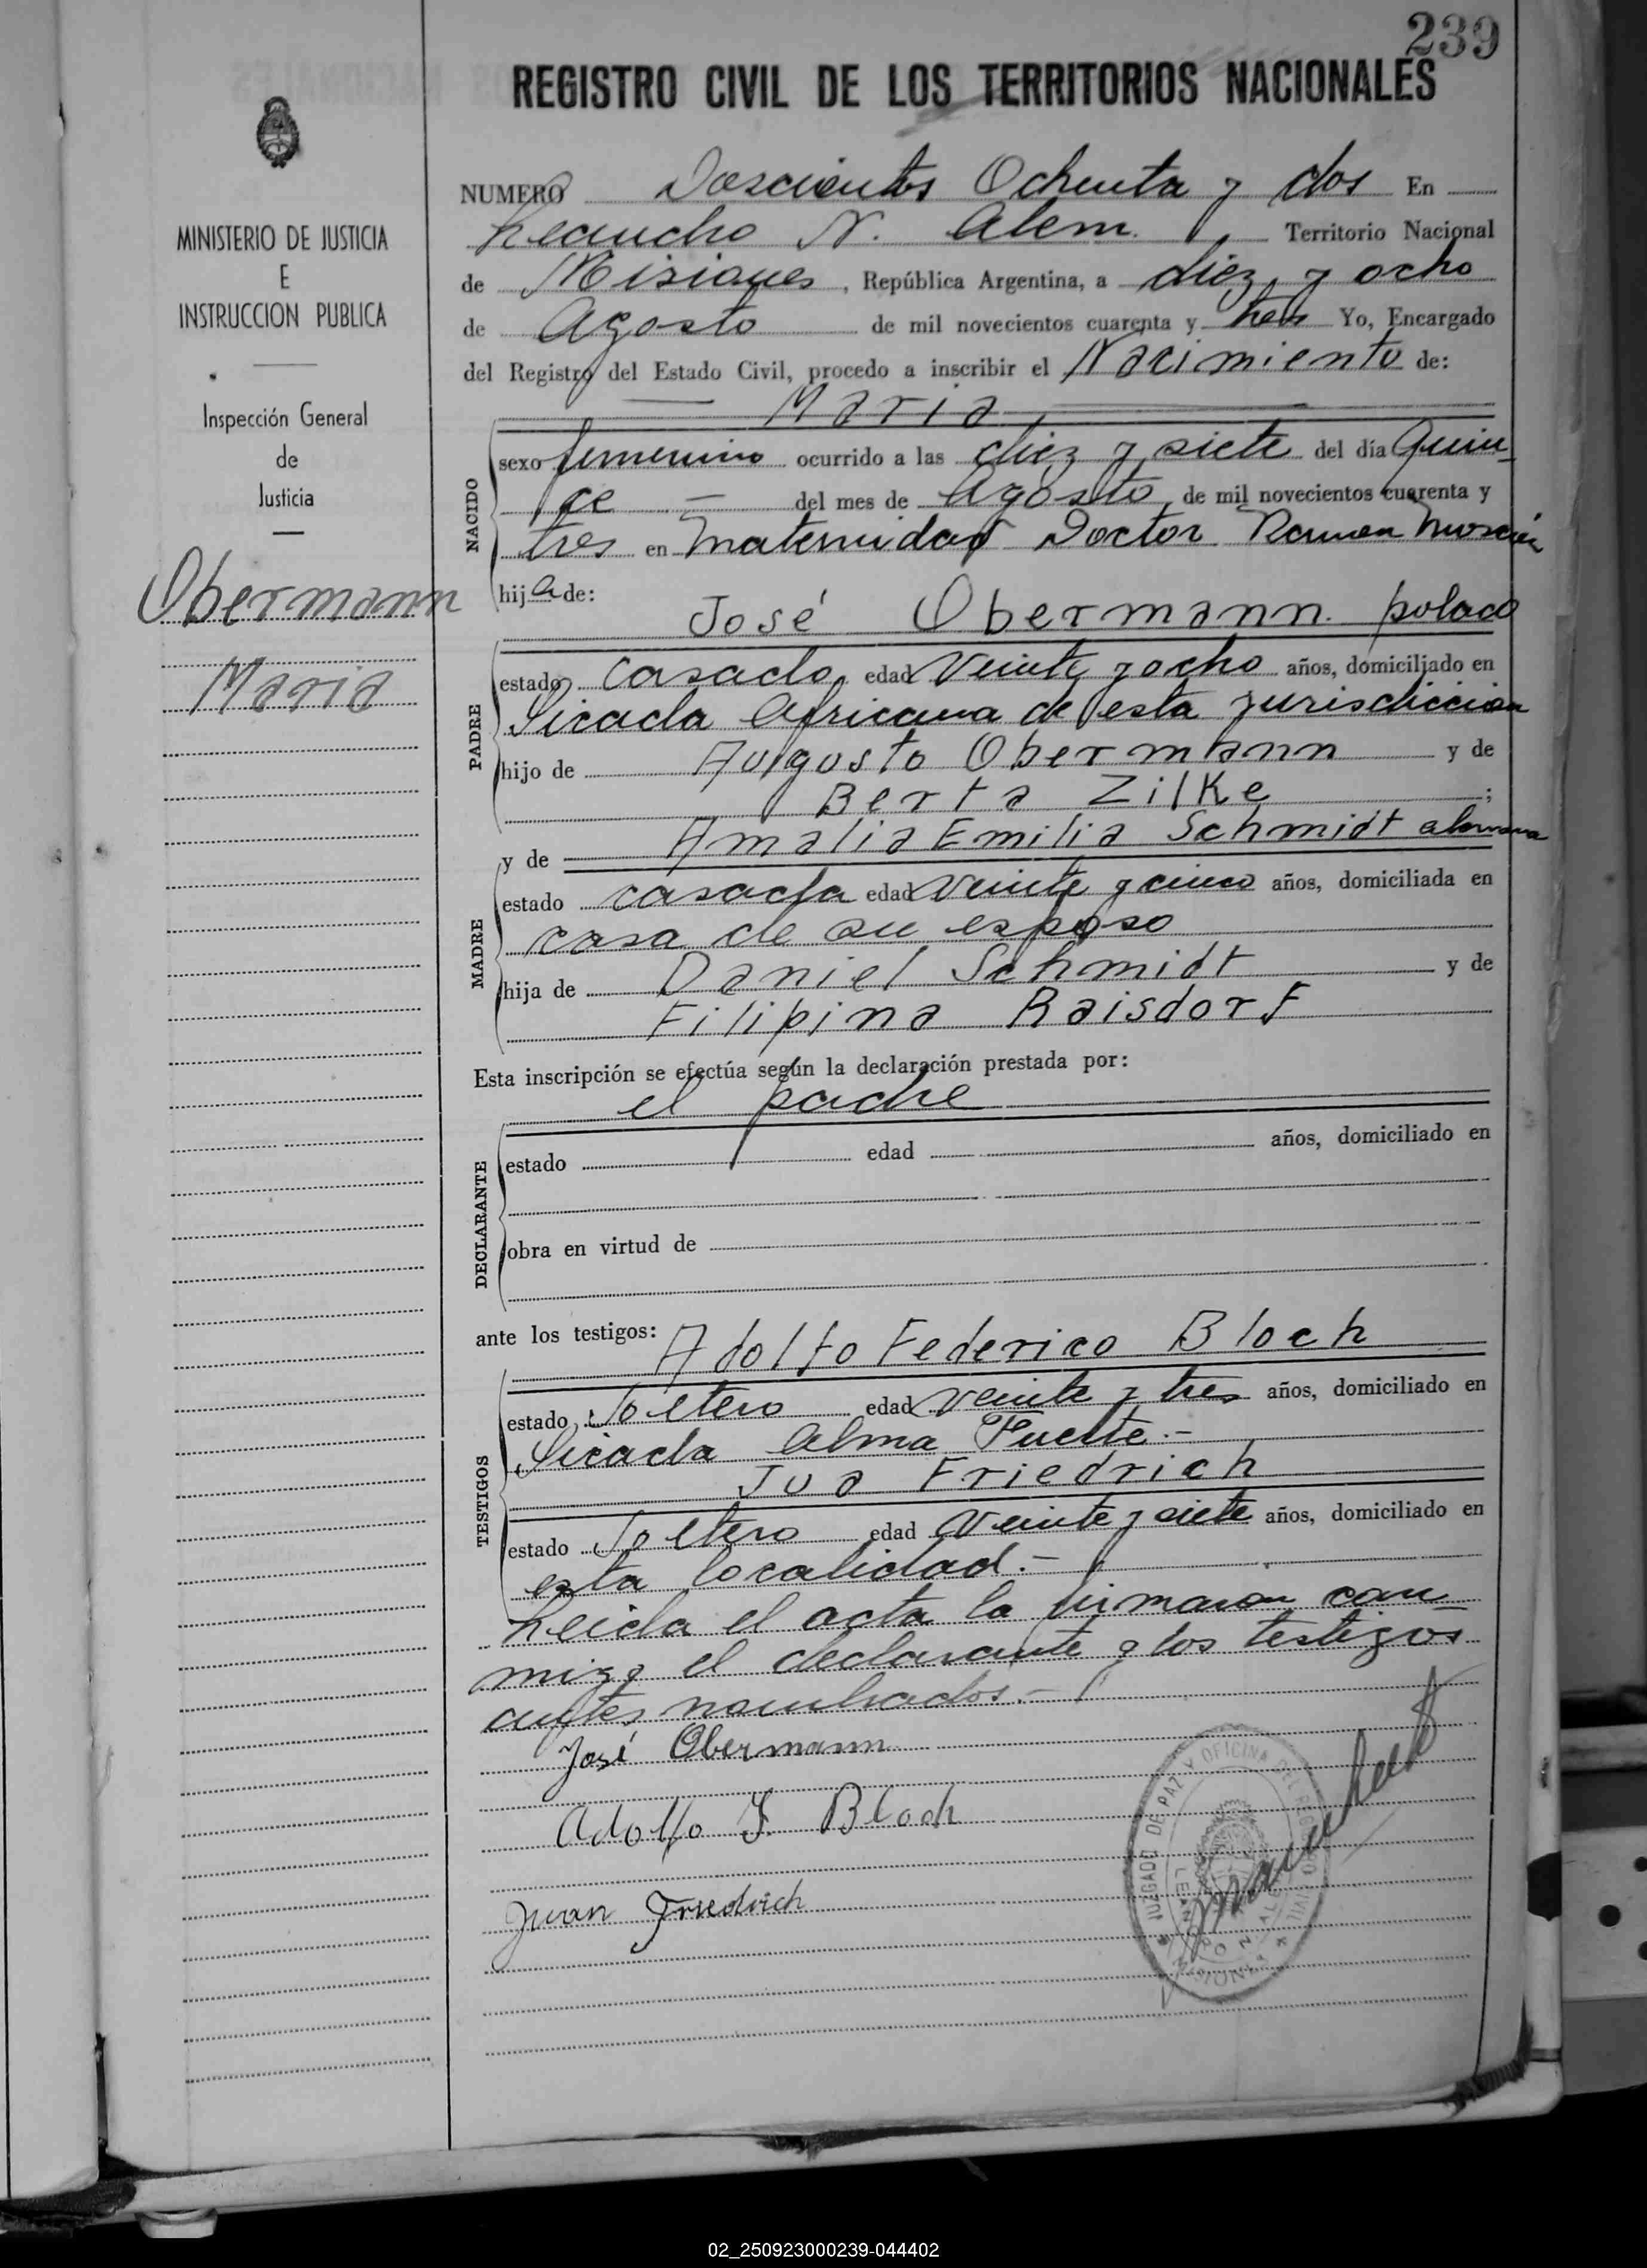 239
REGISTRO CIVIL DE LOS TERRITORIOS NACIONALES
MINISTERIO DE JUSTICIA
E
INSTRUCCION PUBLICA
Inspección General
de
Justicia
Obermann
Maria
NUMERO Doscientos Ochenta y dos En
Leandro N. Alem. Territorio Nacional
de Misiones, República Argentina, a diez y ocho
de Agosto de mil novecientos cuarenta y tres Yo, Encargado
del Registro del Estado Civil, procedo a inscribir el Nacimiento de:
Maria
NACIDO
sexo femenino ocurrido a las diez y siete del día Quin-
ce — del mes de Agosto de mil novecientos cuarenta y
tres en Maternidad Doctor Ramon
hija de:
José Obermann. polaco
PADRE
estado casado, edad Veinte y ocho años, domiciliado en
Picada Africana de esta jurisdiccion
hijo de Augusto Obermann y de
Berta Zilke ;
y de Amalia Emilia Schmidt alemana
MADRE
estado casada edad Veinte y cinco años, domiciliada en
casa de su esposo
hija de Daniel Schmidt y de
Filipina Raisdorf
Esta inscripción se efectúa según la declaración prestada por:
el padre
DECLARANTE
estado edad años, domiciliado en
obra en virtud de
ante los testigos: Adolfo Federico Bloch
TESTIGOS
estado Soltero edad veinte y tres años, domiciliado en
Picada Alma Fuerte.-
Jua Friedrich
estado Soltero edad Veinte y siete años, domiciliado en
esta localidad.-
Leida el acta la firmaron con-
migo el declarante y los testigos
antes nombrados.-
José Obermann
Adolfo F. Bloch
Juan Friedrich
JUZGADO DE PAZ Y OFICINA DEL REGISTRO CIVIL
LEANDRO N. ALEM
MISIONES
02_250923000239-044402